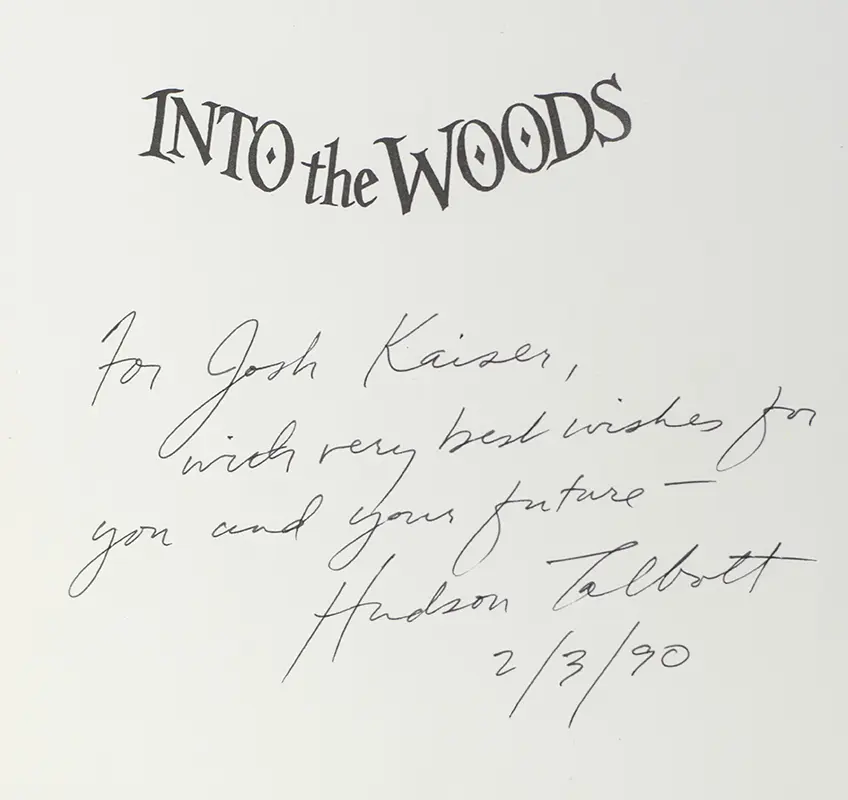 INTO the WOODS
For Josh Kaiser,
with very best wishes for
you and your future —
Hudson Talbott
2/3/90